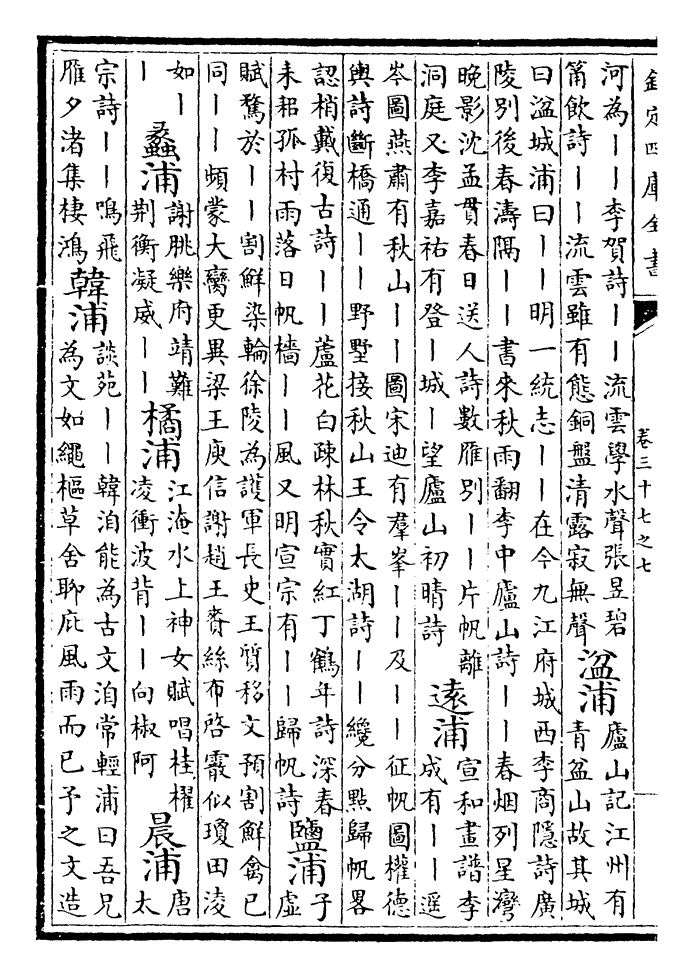 欽定四庫全書
卷三十七之七
河為丨丨李賀詩丨丨流雲學水聲張昱碧
筩飲詩丨丨流雲雖有態銅盤清露寂無聲
湓浦
廬山記江州有
青盆山故其城
曰湓城浦曰丨丨明一統志丨丨在今九江府城西李商隱詩廣
陵別後春濤隔丨丨書來秋雨翻李中廬山詩丨丨春烟列星灣
晚影沈孟貫春日送人詩數雁別丨丨片帆離
洞庭又李嘉祐有登丨城丨望廬山初晴詩
遠浦
宣和畫譜李
成有丨丨遥
岑圖燕肅有秋山丨丨圖宋迪有羣峯丨丨及丨丨征帆圖權德
輿詩斷橋通丨丨野墅接秋山王令太湖詩丨丨纜分點歸帆畧
認梢戴復古詩丨丨蘆花白疎林秋實紅丁鶴年詩深春
耒耜孤村雨落日帆檣丨丨風又明宣宗有丨丨歸帆詩
鹽浦
子
虛
賦騖於丨丨割鮮染輪徐陵為護軍長史王質移文預割鮮禽已
同丨丨頻蒙大臠更異梁王庾信謝趙王賚絲布啓霰似瓊田凌
如丨
丨
蠡浦
謝朓樂府靖難
荆衡凝威丨丨
橘浦
江淹水上神女賦唱桂櫂
凌衝波背丨丨向椒阿
晨浦
唐
太
宗詩丨丨鳴飛
雁夕渚集棲鴻
韓浦
談苑丨丨韓洎能為古文洎常輕浦曰吾兄
為文如繩樞草舍聊庇風雨而已予之文造